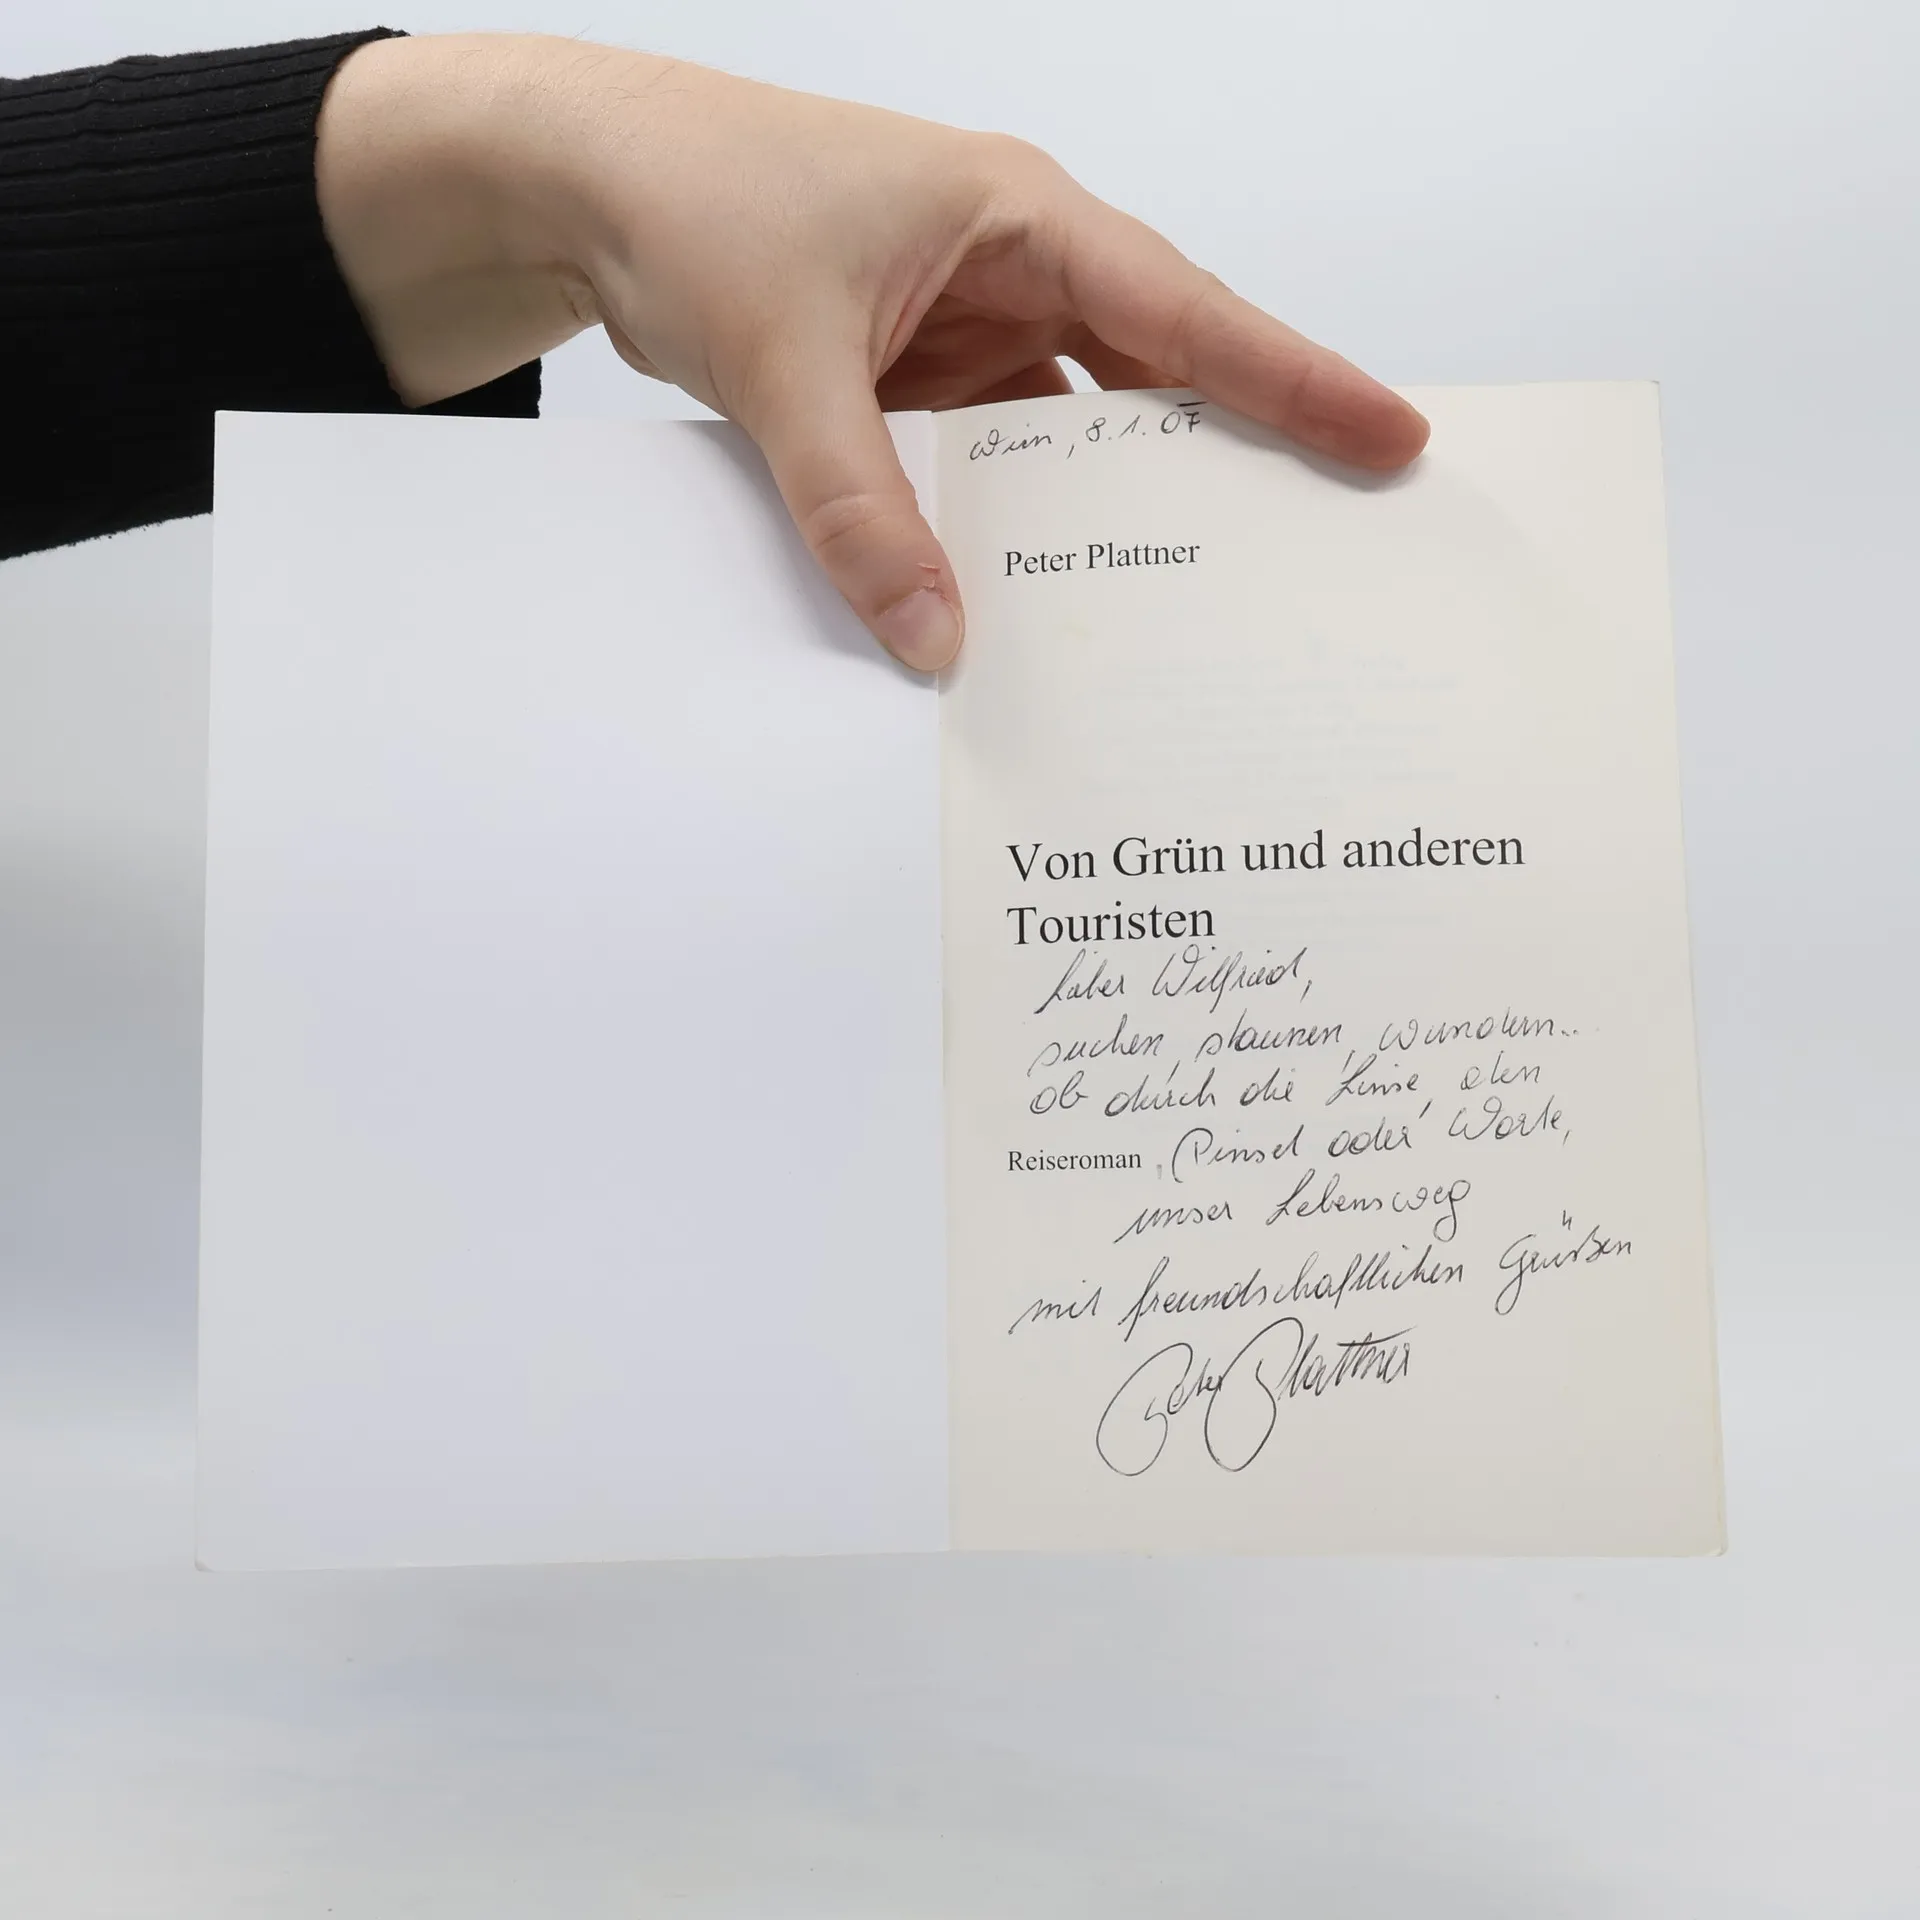 Wien, 8.1.07
Peter Plattner
Von Grün und anderen
Touristen
Lieber Wilfried,
suchen, staunen, wundern..
ob durch die Linse, den
Reiseroman , Pinsel oder Worte,
unser Lebensweg
mit freundschaftlichen Grüßen
Peter Plattner